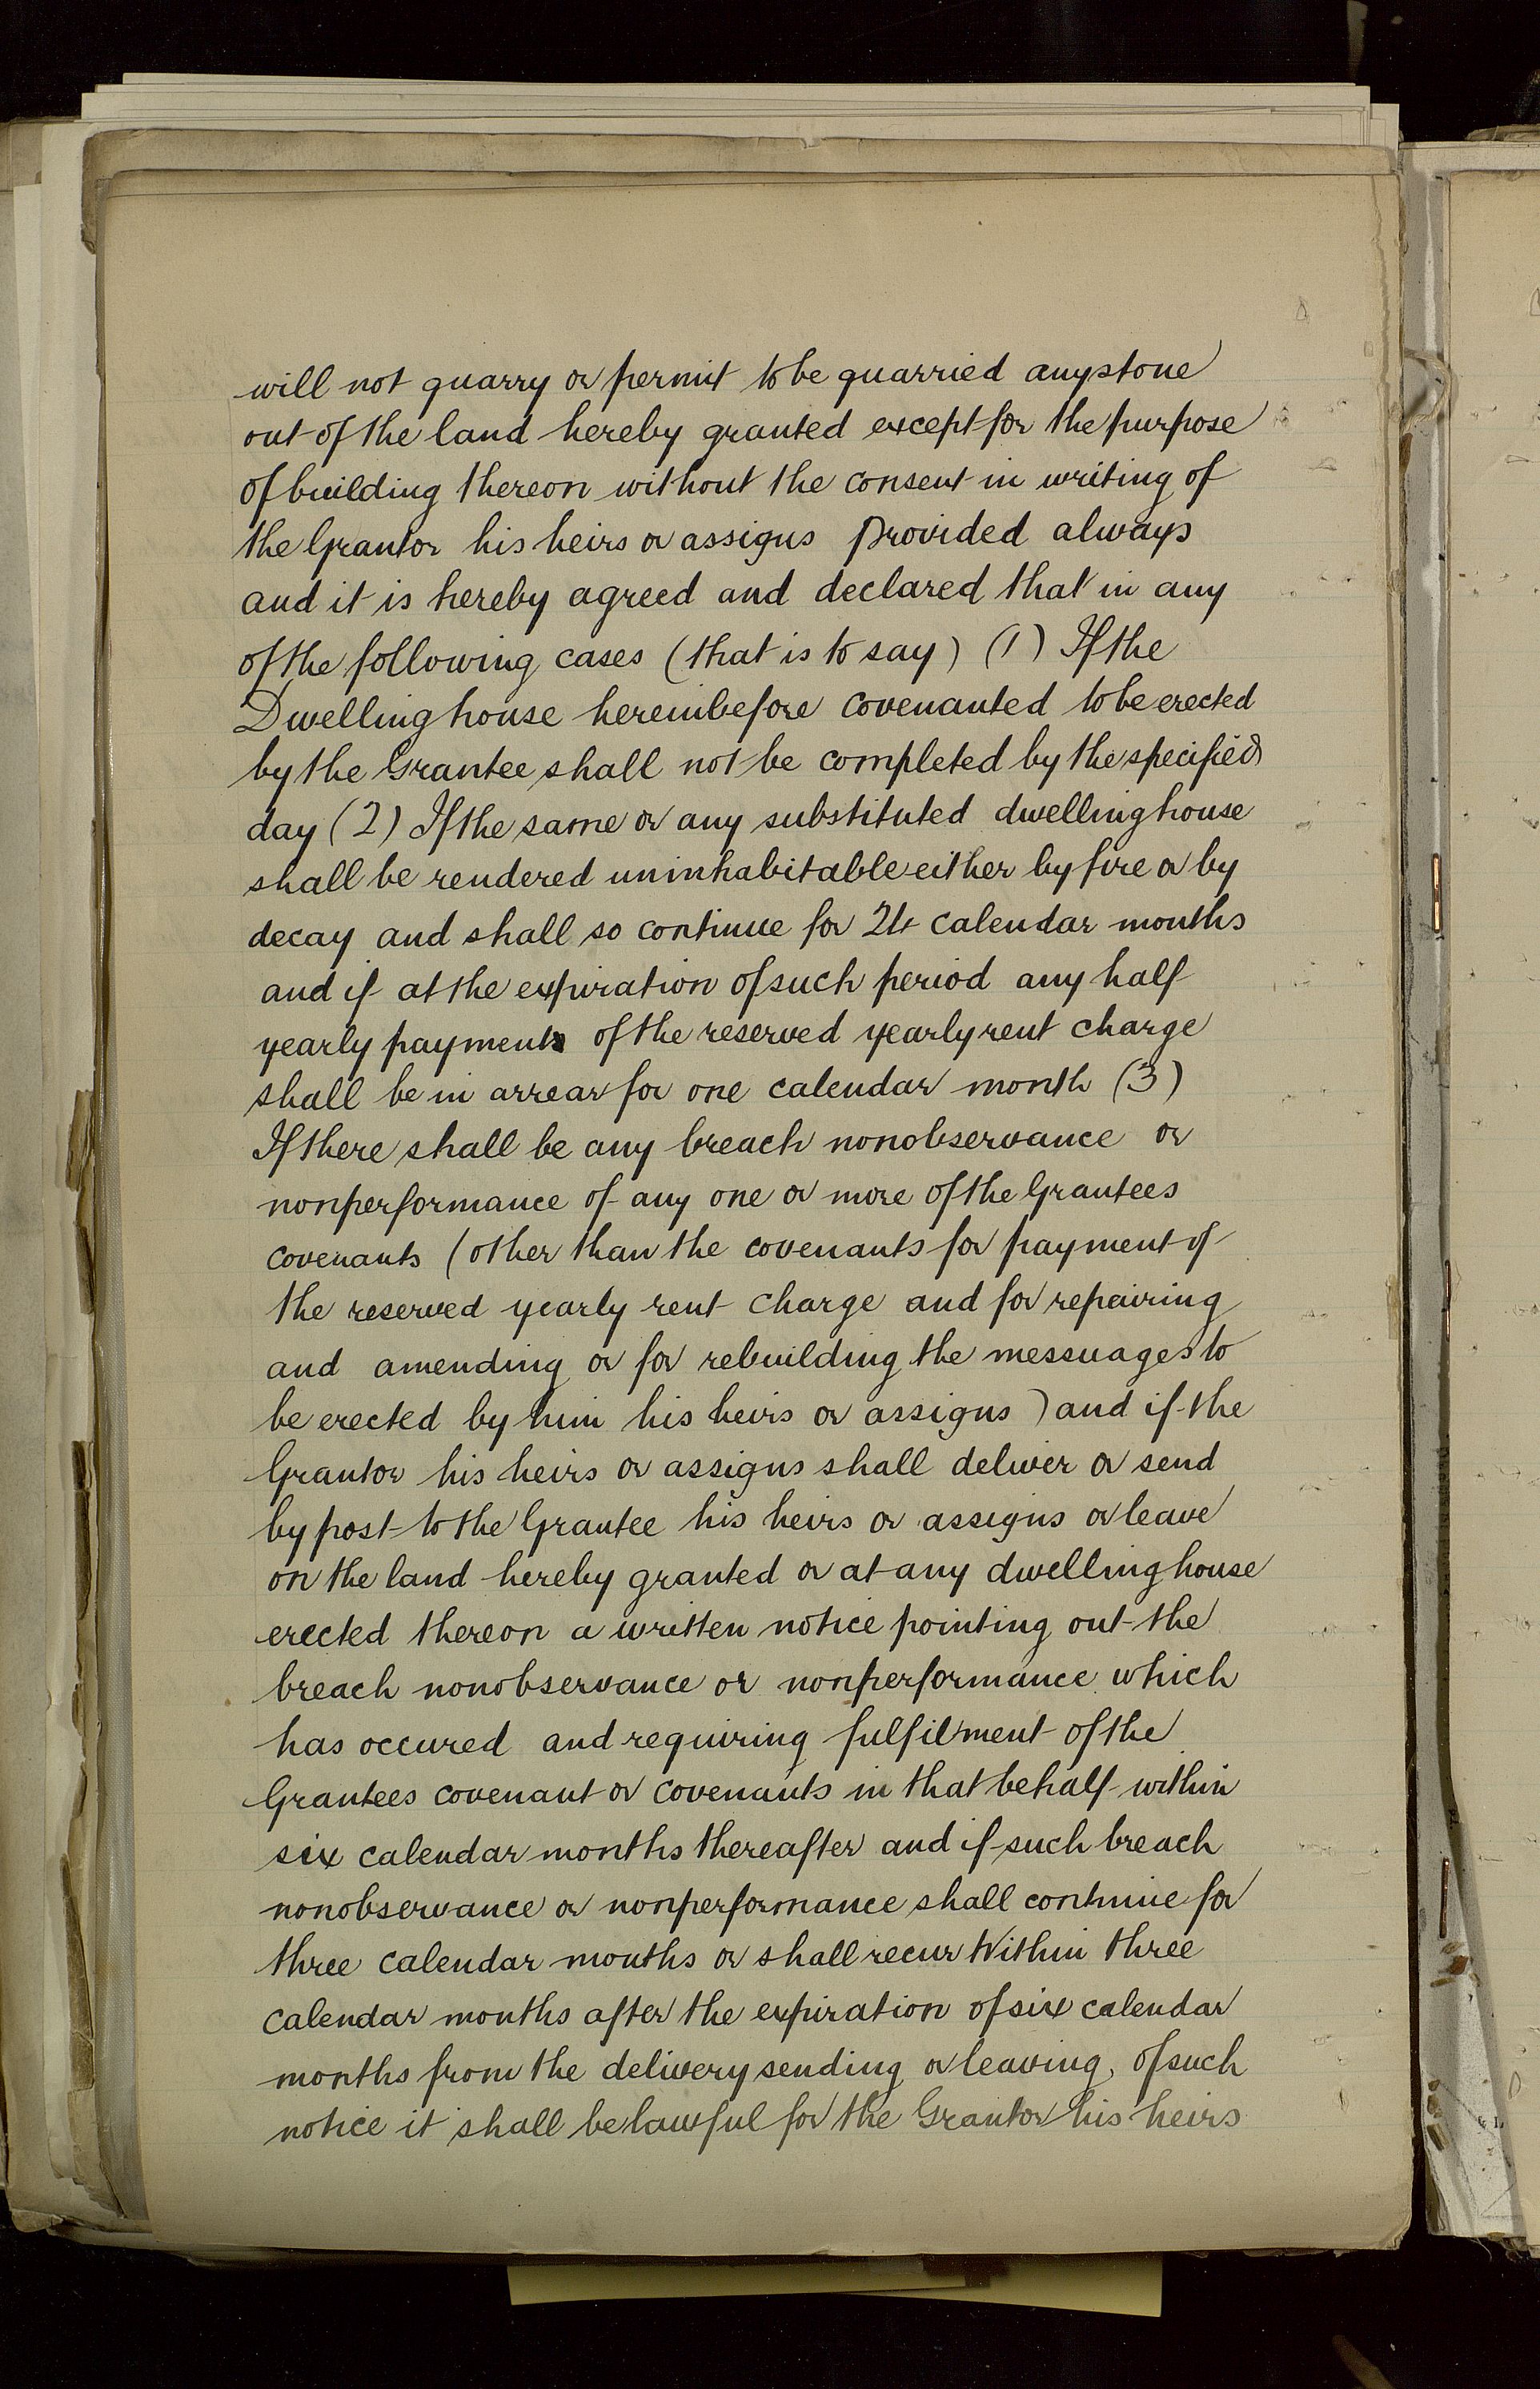 will not quarry or permit to be quarried any stone
out of the land hereby granted except for the purpose
of building thereon without the consent in writing of
the Grantor his heirs or assigns Provided always
and it is hereby agreed and declared that in any
of the following cases (that is to say) (1) If the
Dwellinghouse hereinbefore covenanted to be erected
by the Grantee shall not be completed by the specified
day (2) If the same or any substituted dwellinghouse
shall be rendered uninhabitable either by fire or by
decay and shall so continue for 24 calendar months
and if at the expiration of such period any half
yearly payment of the reserved yearly rent charge
shall be in arrear for one calendar month (3)
If there shall be any breach nonobservance or
nonperformance of any one or more of the Grantees
covenants (other than the covenants for payment of
the reserved yearly rent charge and for repairing
and amending or for rebuilding the messuages to
be erected by him his heirs or assigns) and if the
Grantor his heirs or assigns shall deliver or send
by post to the Grantee his heirs or assigns or leave
on the land hereby granted or at any dwellinghouse
erected thereon a written notice pointing out the
breach nonobservance or nonperformance which
has occured and requiring fulfilment of the
Grantees covenant or covenants in that behalf within
six calendar months thereafter and if such breach
nonobservance or nonperformance shall continue for
three calendar months or shall recur Within three
calendar months after the expiration of six calendar
months from the delivery sending or leaving of such
notice it shall be lawful for the Grantor his heirs